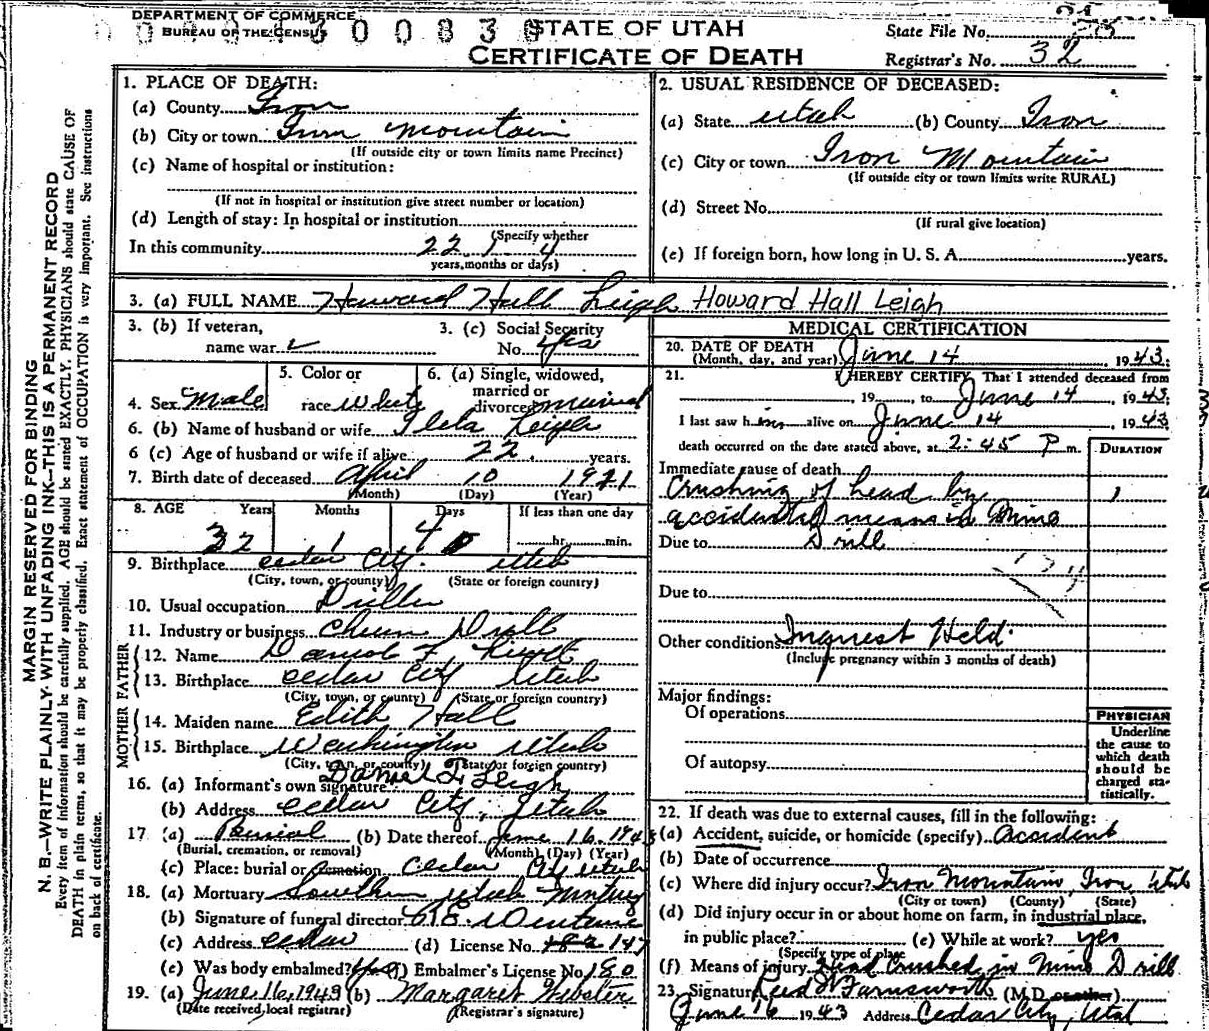 DEPARTMENT OF COMMERCE
BUREAU OF THE CENSUS
STATE OF UTAH
CERTIFICATE OF DEATH
State File No.
Registrar's No. 32
MARGIN RESERVED FOR BINDING
N. B.—WRITE PLAINLY WITH UNFADING INK—THIS IS A PERMANENT RECORD
Every item of information should be carefully supplied. AGE should be stated EXACTLY. PHYSICIANS should state CAUSE OF
DEATH in plain terms, so that it may be properly classified. Exact statement of OCCUPATION is very important. See instructions
on back of certificate.
1. PLACE OF DEATH:
(a) County Iron
(b) City or town Iron Mountain
(If outside city or town limits name Precinct)
(c) Name of hospital or institution:
(If not in hospital or institution give street number or location)
(d) Length of stay: In hospital or institution
(Specify whether
In this community 22 1 4
years, months or days)
2. USUAL RESIDENCE OF DECEASED:
(a) State Utah (b) County Iron
(c) City or town Iron Mountain
(If outside city or town limits write RURAL)
(d) Street No.
(If rural give location)
(e) If foreign born, how long in U. S. A. years.
3. (a) FULL NAME Howard Hall Leigh Howard Hall Leigh
3. (b) If veteran,
name war
3. (c) Social Security
No. yes
4. Sex Male
5. Color or
race White
6. (a) Single, widowed,
married or
divorced married
6. (b) Name of husband or wife Leigh
6 (c) Age of husband or wife if alive 22 years.
7. Birth date of deceased April 10 1921
(Month) (Day) (Year)
8. AGE Years Months Days If less than one day
22 1 4 hr. min.
9. Birthplace Cedar City. Utah
(City, town, or county) (State or foreign country)
10. Usual occupation Driller
11. Industry or business Churn Drill
FATHER
12. Name Daniel F Leigh
13. Birthplace Cedar City Utah
(City, town, or county) (State or foreign country)
MOTHER
14. Maiden name Edith Hall
15. Birthplace Washington Utah
(City, town, or county) (State or foreign country)
16. (a) Informant's own signature Daniel F Leigh
(b) Address Cedar City, Utah
17 (a) Burial (b) Date thereof June 16, 1943
(Burial, cremation, or removal) (Month) (Day) (Year)
(c) Place: burial or cremation Cedar City Utah
18. (a) Mortuary Southern Utah Mortuary
(b) Signature of funeral director
(c) Address Cedar (d) License No. 147
(e) Was body embalmed? yes (f) Embalmer's License No. 180
19. (a) June 16, 1943 (b) Margaret Webster
(Date received local registrar) (Registrar's signature)
MEDICAL CERTIFICATION
20. DATE OF DEATH
(Month, day, and year) June 14, 1943
21. I HEREBY CERTIFY, That I attended deceased from
, 19, to June 14, 1943
I last saw him alive on June 14, 1943
death occurred on the date stated above, at 2:45 P m.
DURATION
Immediate cause of death
Crushing of head by
accidental means in Mine
Due to Drill
Due to
Other conditions Inquest Held.
(Include pregnancy within 3 months of death)
Major findings:
Of operations
Of autopsy
PHYSICIAN
Underline
the cause to
which death
should be
charged sta-
tistically.
22. If death was due to external causes, fill in the following:
(a) Accident, suicide, or homicide (specify) Accident
(b) Date of occurrence
(c) Where did injury occur? Iron Mountain, Iron, Utah
(City or town) (County) (State)
(d) Did injury occur in or about home on farm, in industrial place,
in public place? (e) While at work? yes
(Specify type of place
(f) Means of injury Head Crushed in Mine Drill
23. Signature Reed W Farnsworth (M.D. or other)
June 16 1943 Address Cedar City, Utah